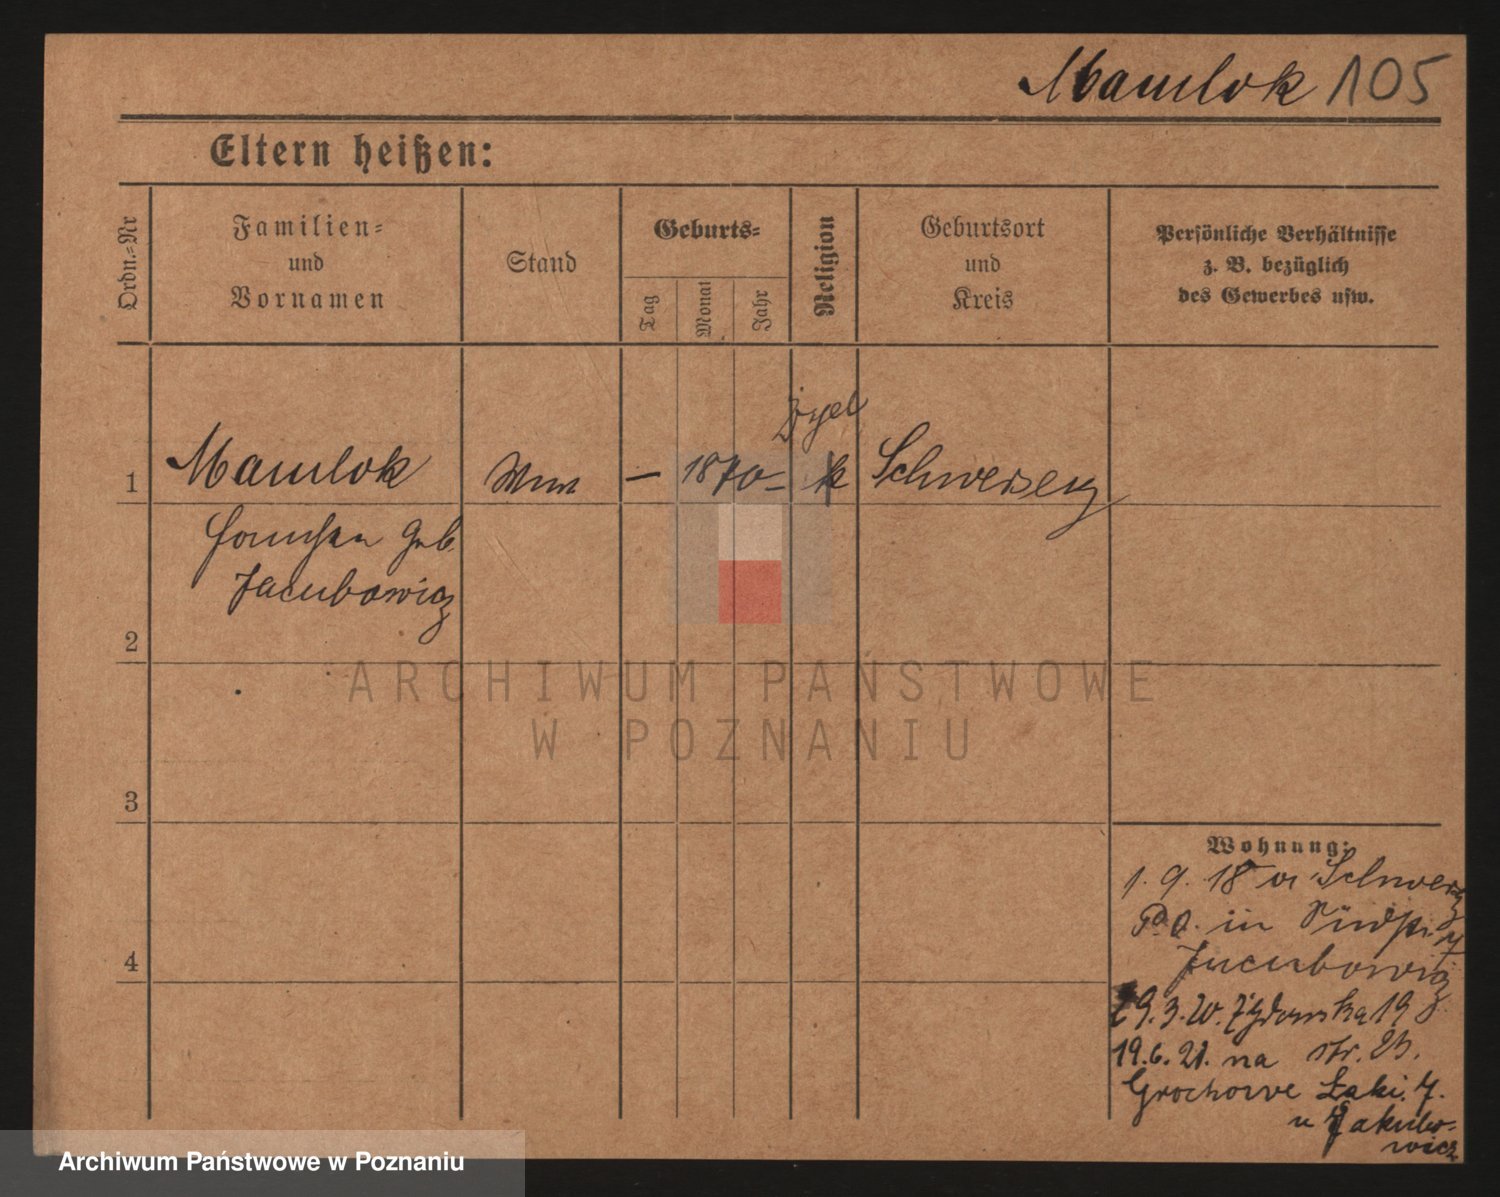 Mamlok 105
Eltern heißen:
Ordn.-Nr
Familien-
und
Vornamen
Stand
Geburts-
Tag
Monat
Jahr
Religion
Geburtsort
und
Kreis
Persönliche Verhältnisse
z. B. bezüglich
des Gewerbes usw.
1
Mamlok
Wwe
— 1870 —
Schwersenz
geb.
Jacubowicz
2
ARCHIWUM PAŃSTWOWE
W POZNANIU
3
4
Wohnung:
1. 9. 18 Schwersenz
in
Jacubowicz
29.3.20. Żydowska 19
19.6.21. na str. 23.
Grochowe Łaki. 7.
u Jakubo-
wicz
Archiwum Państwowe w Poznaniu